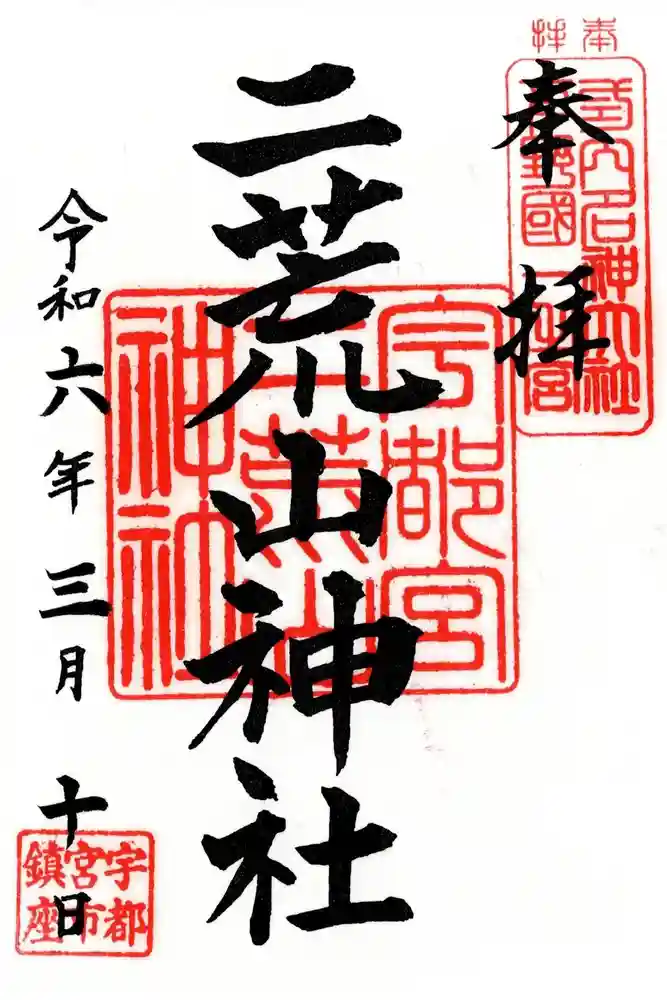 奉拝
奉拝
式内名神大社
下野國一之宮
二荒山神社
宇都宮
二荒山
神社
令和六年三月十日
宇都
宮市
鎮座